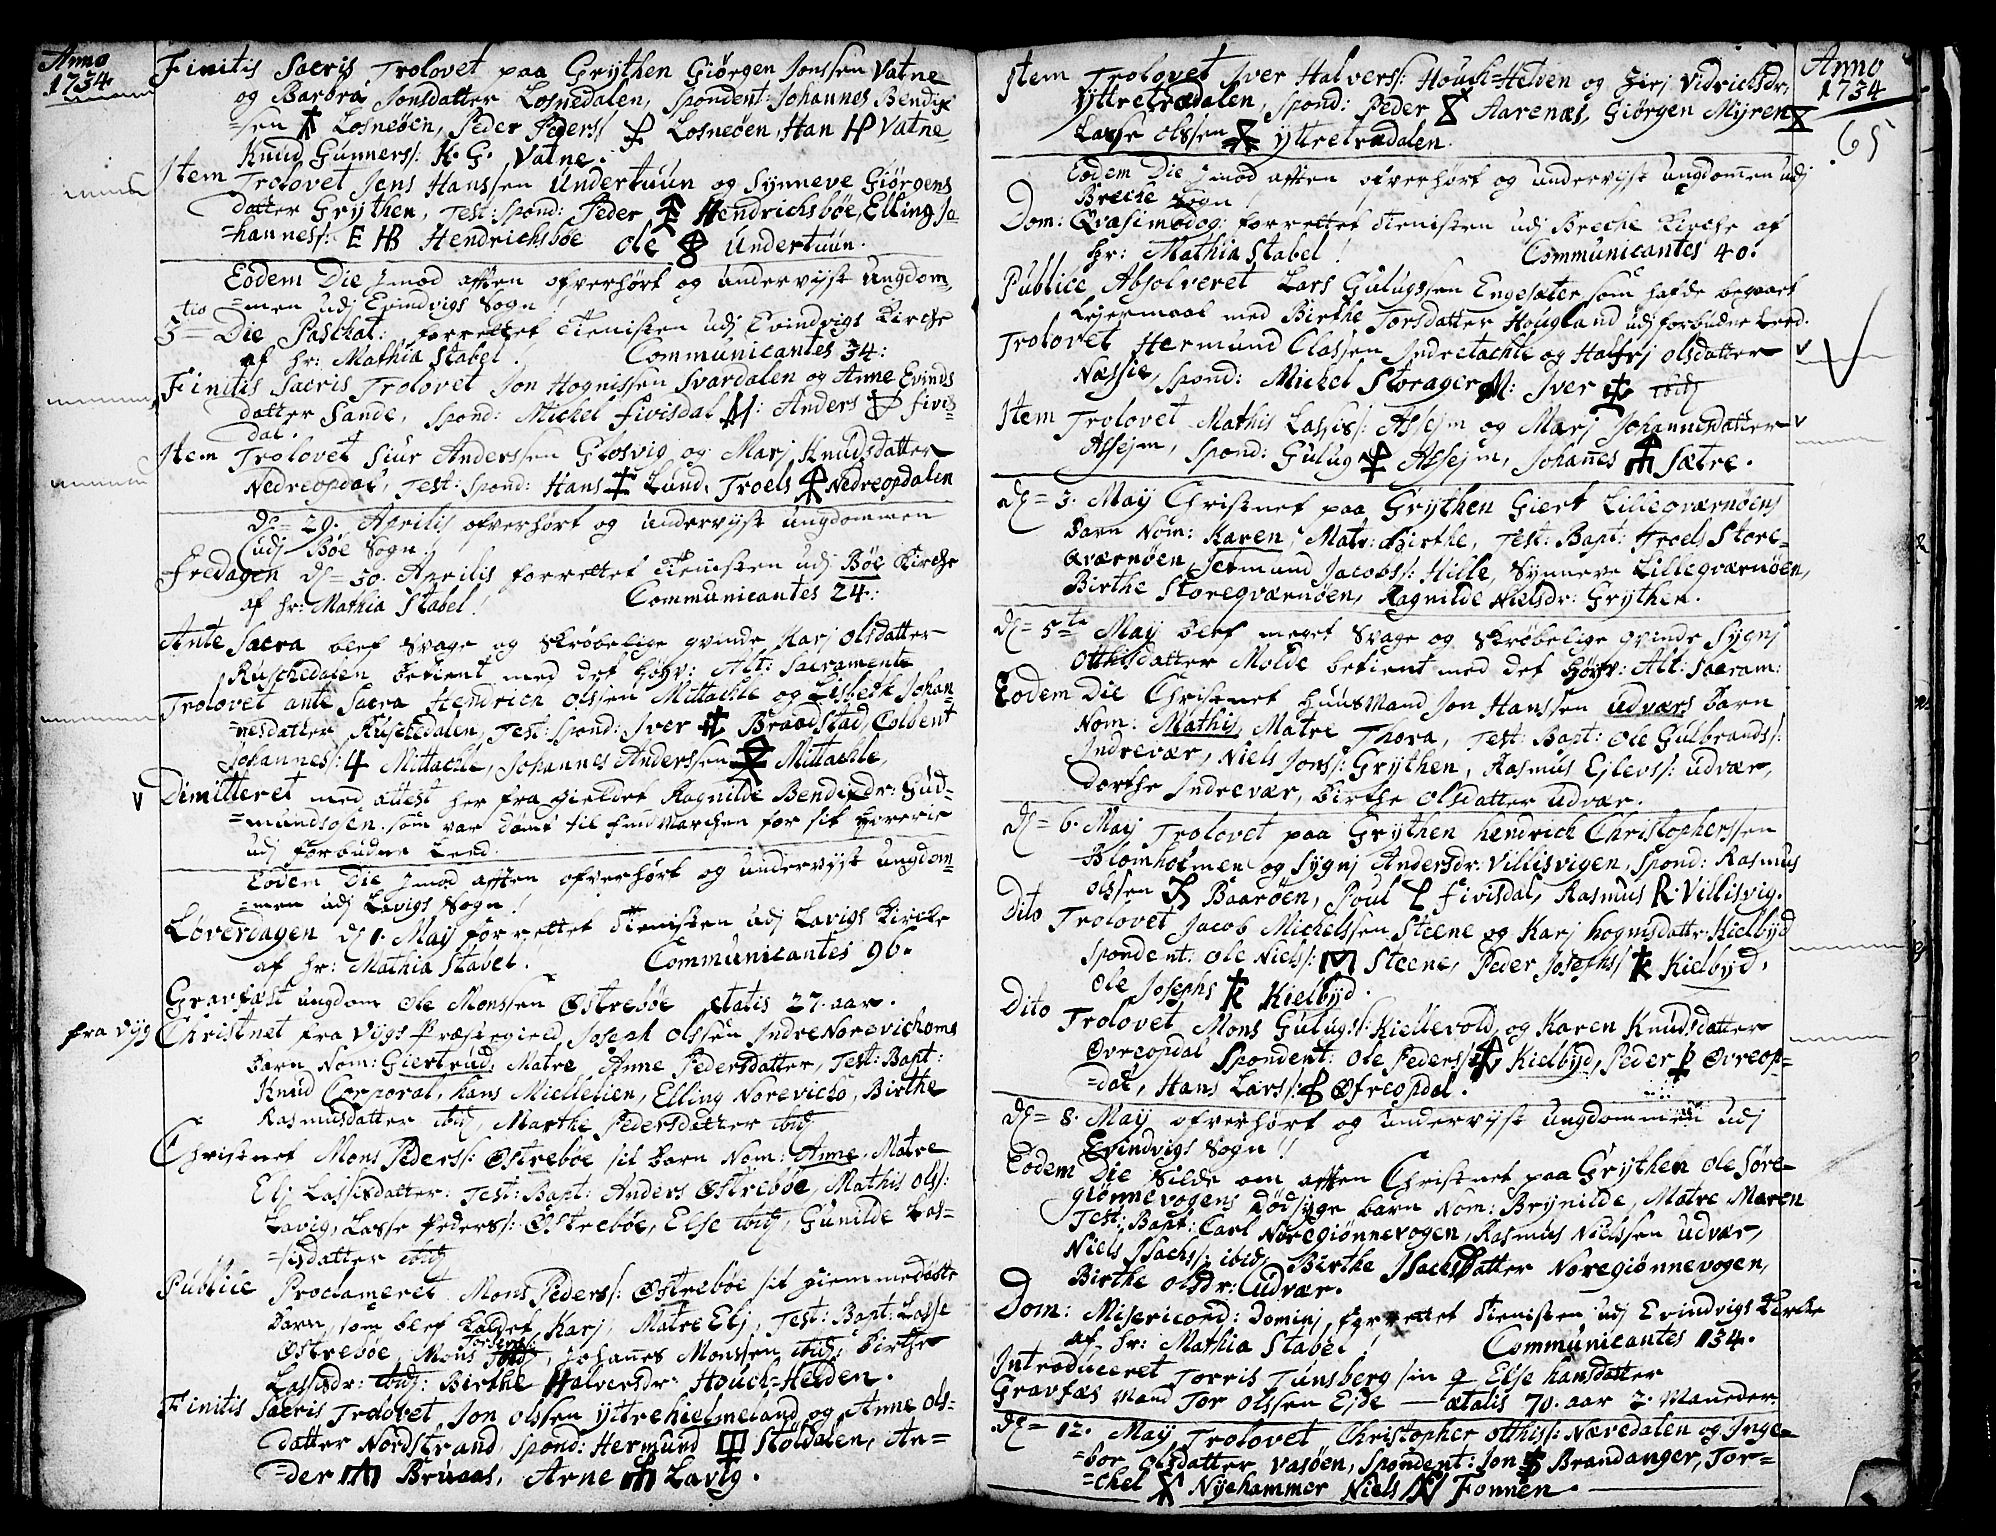 Anno
1734
Finitis Sacris Trolovet paa Grÿthen Giørgen Jonssen Vatne
og Barbra Jonsdatter Losnedalen, Spondent: Johannes Bendix
=sen Losneøen, Peder Peders: Losneøen, Han H Vatne
Knud Gunners: K. G. Vatne.
Item Trolovet Jens Hanssen Undertuun og Sÿnneve Giørgens
datter Grÿthen, Test: Spond: Peder Hendrichsbøe, Elling Jo-
=hannes: E HB Hendrichsbøe Ole Undertuun.
Eodem Die imod afften ofverhørt og undervijst ungdom,
=men udj Evindvigs Sogn!
5tio Die Paschat: forrettet Tienisten udj Evindvigs Kirche
af hr: Mathia Stabel. Communicantes 34:
Finitis Sacris Trolovet Jon Hognissen Svardalen og Anne Evinds
datter Sande, Spond: Michel Fivisdal M: Anders Fivis-
dal.
Item Trolovet Siur Anderssen Glosvig og Marj Knudsdatter
Nedreopdal, Test: Spond: Hans Lund, Troels Nedreopdalen
d= 29. Aprilis ofverhørt og undervijst ungdommen
udj Bøe Sogn.
Fredagen d= 30. Aprilis forrettet Tienisten udj Bøe Kirche
af hr: Mathia Stabel! Communicantes 24:
Ante Sacra blef Svage og Skrøbelige qvinde Karj Olsdatter
Ruschedalen betient med det Høyv: Alt: Sacramente
Trolovet ante Sacra Hendrich Olssen Mittachle og Lisbeth Johan-
=nesdatter Ruschedalen, Test: Spond: Iver Braadstad, Colbent
Johannes: 4 Mittachle, Johannes Anderssen Mittachle.
V Dimitteret med attest her fra gieldet Ragnilde Bendixdr: Gud-
=mundsøen som var dømt til Finmarchen for sit Horerie
udj forbudne Leed.
Eodem Die imod afften ofverhørt og undervijst ungdom-
=men udj Lavigs Sogn!
Løverdagen d 1. Maÿ forrettet Tienisten udj Lavigs Kirche
af hr: Mathia Stabel. Communicantes 96.
Gravfæst ungdom Ole Monssen Østrebøe ætatis 27. aar.
fra vÿg Christnet fra Vÿgs Præstegield, Joseph Olssen Indre Norevichoms
barn Nom: Giertrud, Matre Anne Pedersdatter, Test: Bapt:
Knud Corporal, Hans Miellelien, Elling Norevicho, Birthe
Rasmusdatter ibid, Marthe Pedersdatter ibid
Christnet Mons Peders: Østrebøe sit barn Nom: Anne. Matre
Elj Lassisdatter: Test: Bapt: Anders Østrebøe, Mathis Ols:
Lavig, Lasse Pederss: Østrebøe, Else ibid, Gunilde Las-
=sisdatter ibid
Publice Proclameret Mons Peders: Østrebøe sit hiemmedøbte
Barn, som blef kaldet Karj, Matre Elj, Test: Bapt: Lasse
Østrebøe, Mons ibid, Johanes Monssen ibid, Birthe
Lassisdr: ibid: Birthe Halversdr Houch-Helden.
Finitis Sacris Trolovet Jon Olssen Yttrehielmeland og Anne Ols-
datter Nordstrand, Spond: Hermund Støldalen, An-
=der Bruaas, Arne Lavig.
Item Trolovet Iver Halvers: Houch-Helden og Girj Vidrichsdr,
Yttretrædalen, Spond: Peder Aarenæs, Giørgen Mÿren
Lasse Olssen Yttretrædalen.
Anno
1734
65
Eodem Die imod afften ofverhørt og undervijst ungdomen udj
Breche Sogn
Dom: Qvasimodog: forrettet Tienisten udj Breche Kirche af
hr: Mathia Stabel! Communicantes 40.
Publice Absolveret Lars Gulugssen Engesæter som hafde begaaet
Lejermaal med Birthe Torsdatter Hougland udj forbuden Leed.
Trolovet Hermund Classen Indretachle og Halfrj Olsdatter V
Næssie, Spond: Michel Storager M: Iver ibid
Item Trolovet Mathis Lassis: Assejm og Marj Johannisdatter V
Assejm, Spond: Gulug Assejm, Johanes Sætre.
d= 3. Maÿ Christnet paa Grÿthen Giert Lilleqværnøens
barn Nom: Karen, Matr: Birthe, Test: Bapt: Troels Store-
qværnøen Sermund Jacobs: Hille, Sÿnneve Lilleqværnøen,
Birthe Storeqværnøen, Ragnilde Nielsdr: Grÿthen.
d= 5te Maÿ blef meget Svage og Skrøbelige qvinde Sÿgnj
Otthisdatter Molde betient med det Høyv: Alt: Sacram:
Eodem Die Christnet Huusmand Jon Hanssen Udværs barn
Nom: Mathis, Matre Thora, Test: Bapt: Ole Gulbrands:
Indrevær, Niels Jons: Grÿthen, Rasmus Ejlevs: Udvær,
Dorthe Indrevær, Birthe Olsdatter Udvær.
d= 6. Maÿ Trolovet paa Grÿthen Hendrich Christopherssen
Blomholmen og Sÿgnj Andersdr: Villisvigen, Spond: Rasmus
Olssen Baarøen, Poul Fivisdal, Rasmus R. Villisvig.
Dito Trolovet Jacob Michelssen Steene og Karj Hognisdattr Kielbÿd
Spondent: Ole Niels: Steene, Peder Josephs: Kielbÿd,
Ole Josephs Kielbÿd.
Dito Trolovet Mons Gulugs: Kiellevold og Karen Knudsdatter
Øvreopdal Spondent: Ole Peders: Kielbÿd, Peder Øvreop-
=dal, Hans Lars: Øfreopdal.
d= 8. Maÿ ofverhørt og undervijst ungdommen udj
Evindvigs Sogn!!
Eodem Die Silde om afften Christnet paa Grÿthen Ole Søre-
giønnevogens dødsyge barn Nom: Brÿnilde, Matre Maren
Test: Bapt: Carl Noregiønnevogen, Rasmus Nielssen Udvær,
Niels Isachs: ibid, Birthe Isachsdatter Noregiønnevogen,
Birthe Olsdr: Udvær.
Dom: Misericord: Dominj, forrettet Tienisten udj Evindvigs Kirche
af hr: Mathia Stabel! Communicantes 134.
Introduceret Torris Tunsberg sin q Else Hansdatter
Gravfæs Mand Tor Olssen Ejde — ætatis 70. aar 2. Maneder.
d= 12. Maÿ Trolovet Christopher Otthis: Næredalen og Inge-
=bor Olsdatter Vasøen, Spondent: Jon Brandanger, Tor-
=chel Nÿehammer Niels Fonnen.